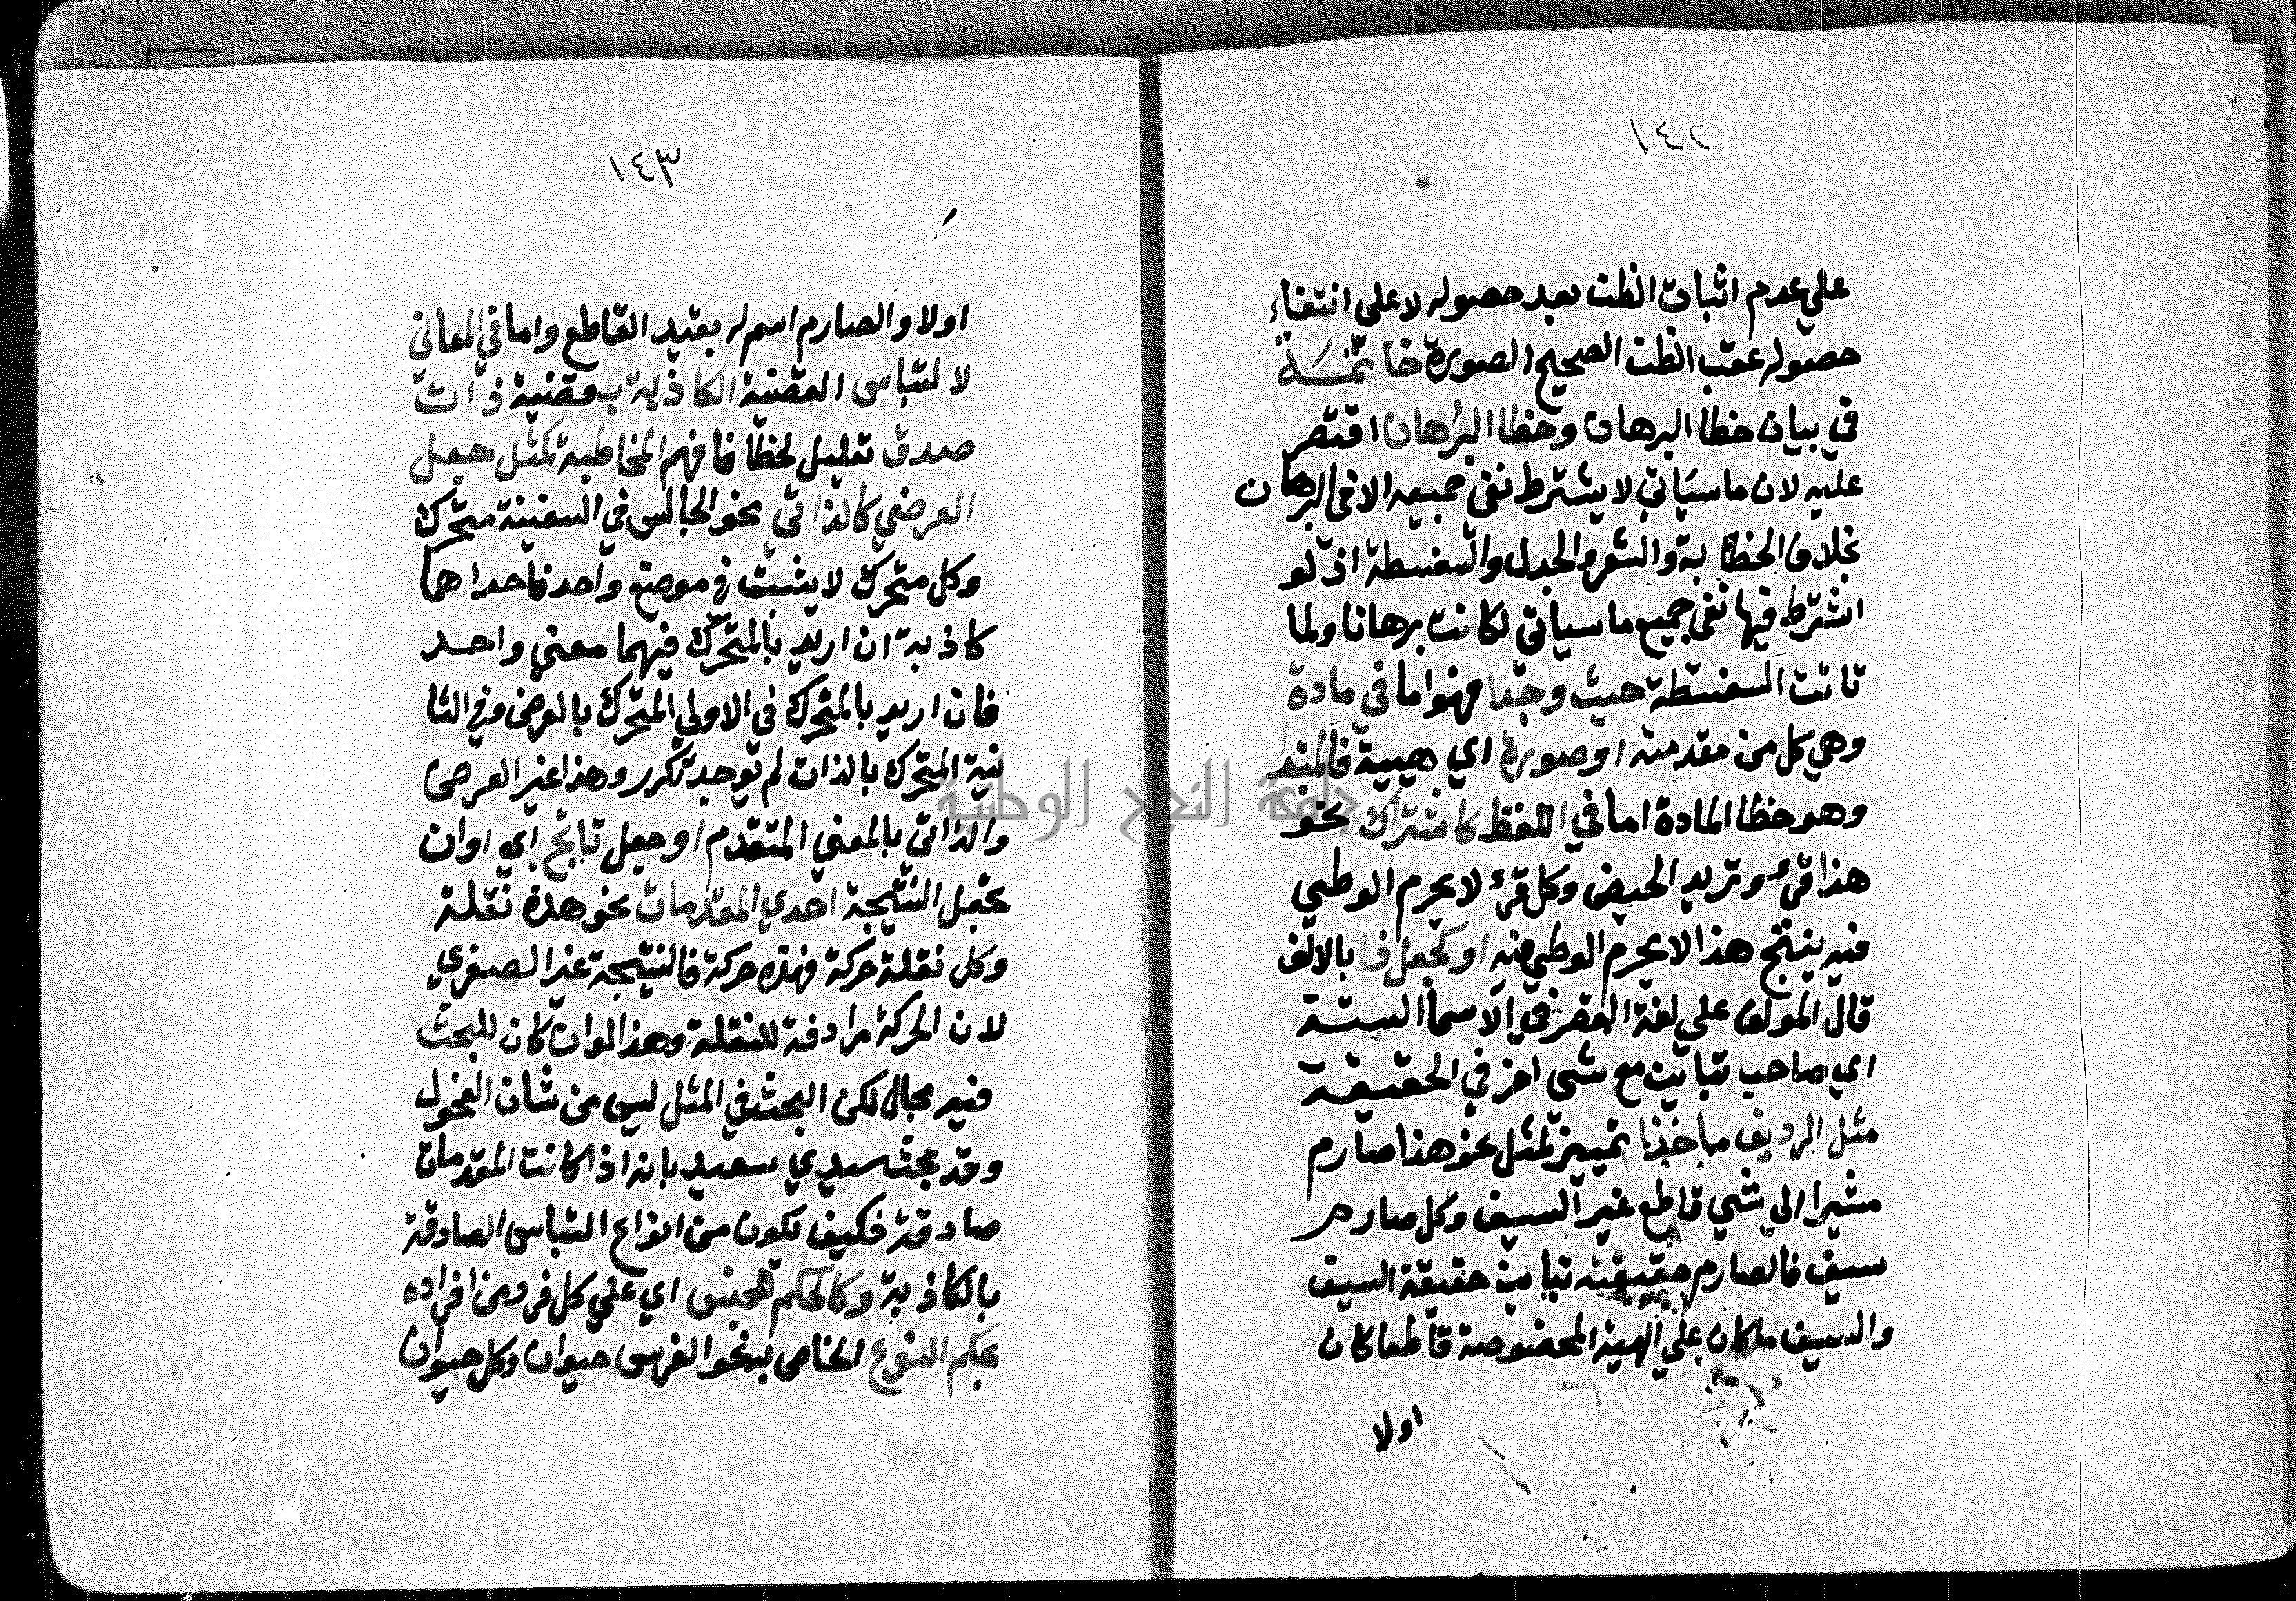 ١٤٢
على عدم اثبات الظن بعد حصوله لا على انتفاء
حصوله عقب الظن الصحيح الصورة خاتمة
في بيان خطا البرهان وخطا البرهان اقتصر
عليه لان ما سياتي لا يشترط نفي جميعه الا في البرهان
بخلاف الخطابة والشعر والجدل والسفسطة اذ لو
اشترط فيها نفي جميع ما سياتي لكانت برهانا ولما
تانت السفسطة حيث وجدا فهو اما في مادة
وهي كل من مقدمته او صورة اي هيية فالمبتدا
وهو خطا المادة اما في اللفظ كاشتراك نحو
هذا قرء وتريد الحيض وكل قرء لا يحرم الوطي
فيه ينتج هذا لا يحرم الوطي فيه او كجعل ذا بالالف
قال المولوى على لغة القصر في الاسما الستة
اي صاحب تباين مع شي اخر في الحقيقة
مثل الرديف ماخذا تمييز لمثل نحو هذا صارم
مشيرا الى شي قاطع غير السيف وكل صارم
سيف فالصارم حقيقته تباين حقيقة السيف
والسيف ما كان على الهية المخصوصة قاطعا كان
اولا
١٤٣
اولا والصارم اسم له بقيد القاطع واما في المعاني
لالتباس القضية الكاذبة بقضية ذات
صدق تعليل لخطا فافهم المخاطبه كمثل جعل
العرضي كالذاتي نحو الجالس في السفينة متحرك
وكل متحرك لا يثبت في موضع واحد فاحداهما
كاذبة ان اريد بالمتحرك فيهما معني واحد
فان اريد بالمتحرك في الاولي المتحرك بالعرض وفي الثا
نية المتحرك بالذات لم توجد تكرر وهذا غير العرضى
والذاتى بالمعني المتقدم او جعل ناتج اي او ان
تجعل النتيجة احدي المقدمات نحو هذه نقلة
وكل نقلة حركة فهذه حركة فالنتيجة عين الصغري
لان الحركة مرادفة للنقلة وهذا لو ان كان للبحث
فيه مجال لكن البحث في المثل ليس من شان الفحول
وقد بحث سيدي سعيد بانه اذا كانت المقدمات
صادقة فكيف تكون من انواع التباس الصادقة
بالكاذبة وكالحكم للجنس اي علي كل فرد من افراده
بحكم النوع الخاص به نحو الفرس حيوان وكل حيوان
جامعة النجاح الوطنية